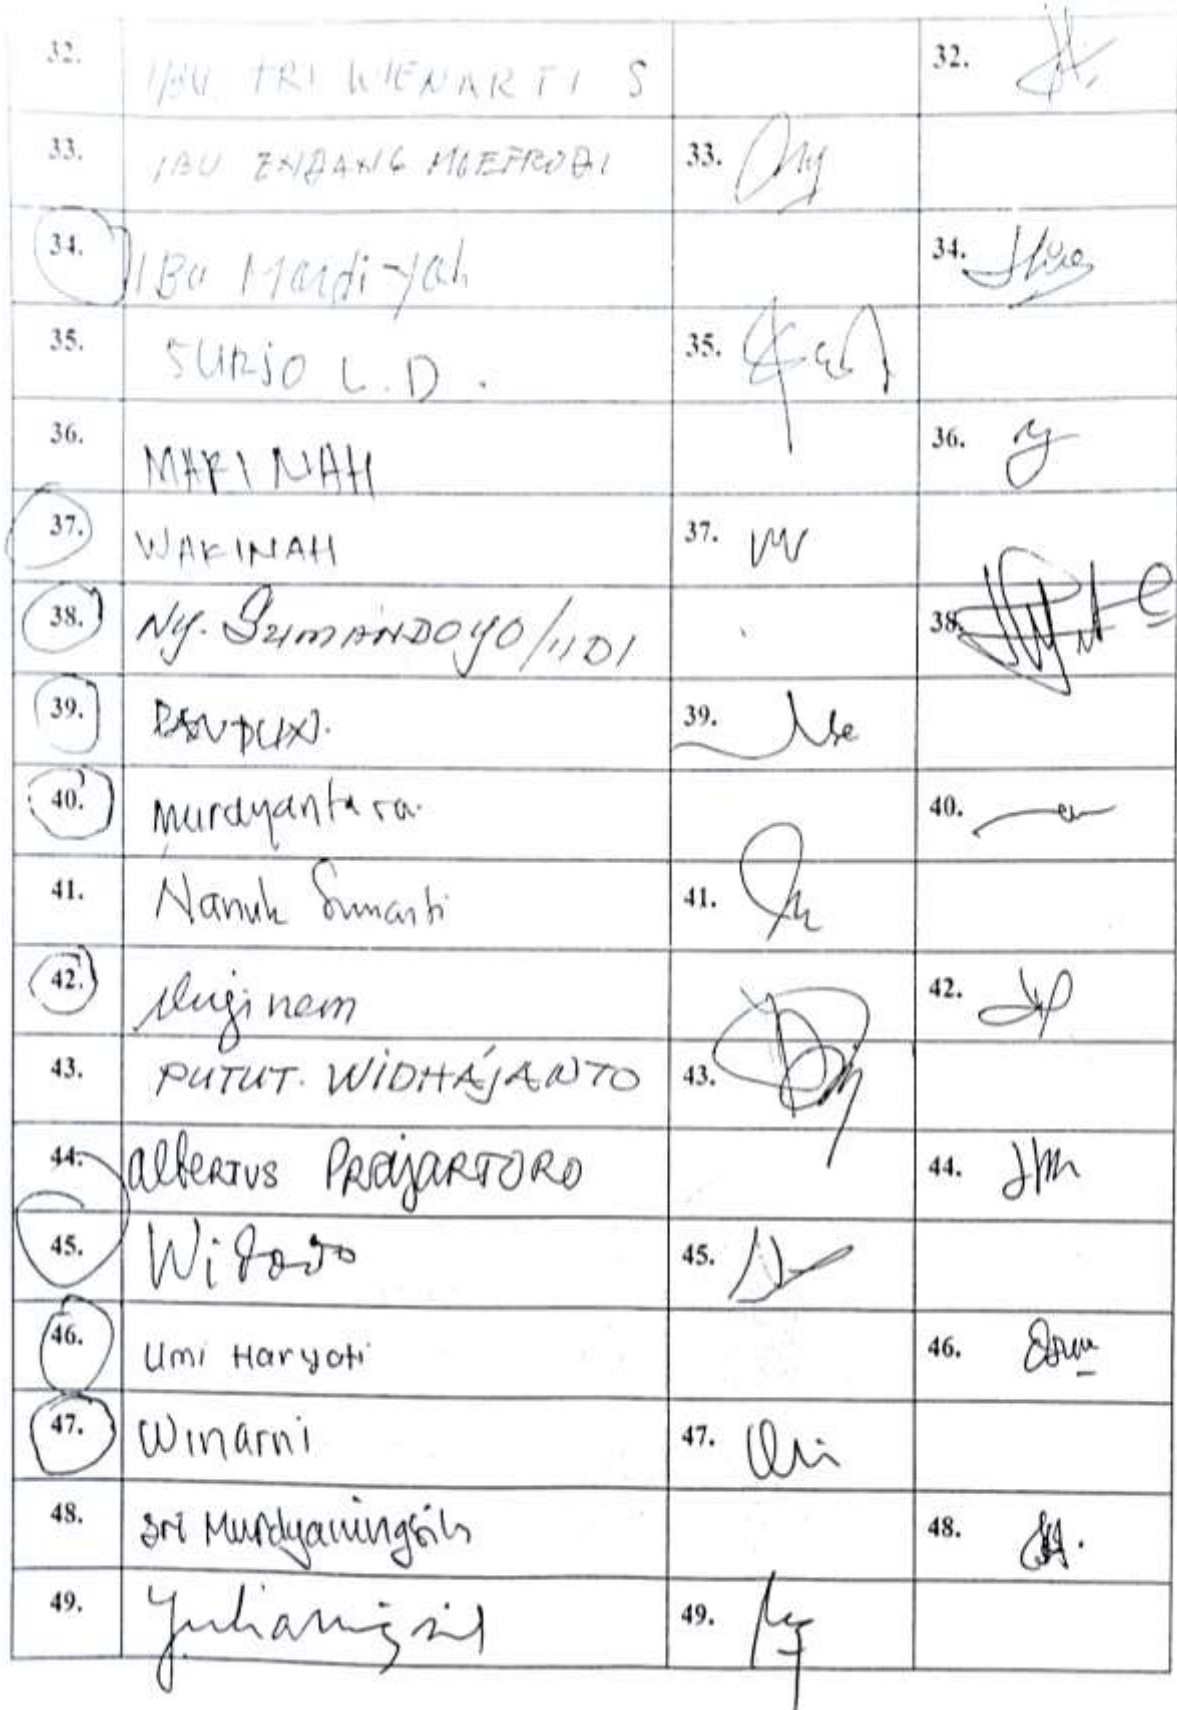 32. IBU TRI WIENARTI S 32.
33. IBU ENDANG MOEFRODI 33.
34. IBU Mardi-yah 34.
35. SURJO L.D. 35.
36. 36.
37. WAKINAH 37.
38. NY. SUMANDOYO/ 38.
39. 39.
40. Murdyantara. 40.
41. Nanuk Sunarti 41.
42. Muginem 42.
43. PUTUT. WIDHAJANTO 43.
44. AlBERTUS PRAJARTORO 44.
45. Widodo 45.
46. Umi Haryati 46.
47. Winarni 47.
48. Sri Murdyaningsih 48.
49. Yulianingsih 49.